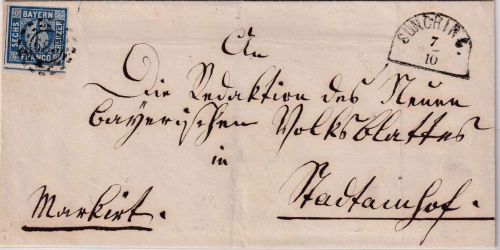 BAYERN
SECHS
KREUZER
FRANCO
SÜNCHING.
7
10
An
Die Redaktion des Neuen
bayerischen Volksblattes
in
Stadtamhof.
Markirt.